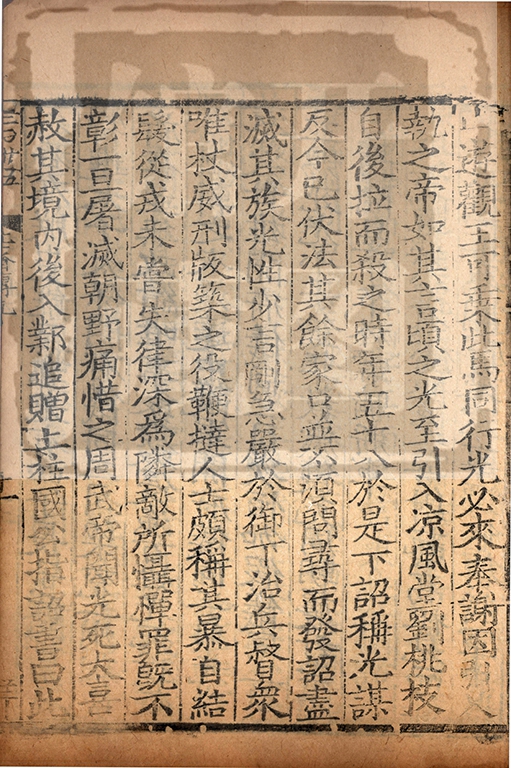 遊觀王可乘此馬同行光必來奉謝因引入
執之帝如其言頃之光至引入凉風堂劉桃枝
自後拉而殺之時年五十八於是下詔稱光謀
反今已伏法其餘家口並不須問尋而發詔盡
滅其族光性少言剛急嚴於御下治兵督衆
唯杖威刑版築之役鞭撻人士頗稱其暴自結
髮從戎未嘗失律深爲隣敵所懾憚罪旣不
彰一旦屠滅朝野痛惜之周武帝聞光死大喜
赦其境内後入鄴追贈上柱國公指詔書曰此